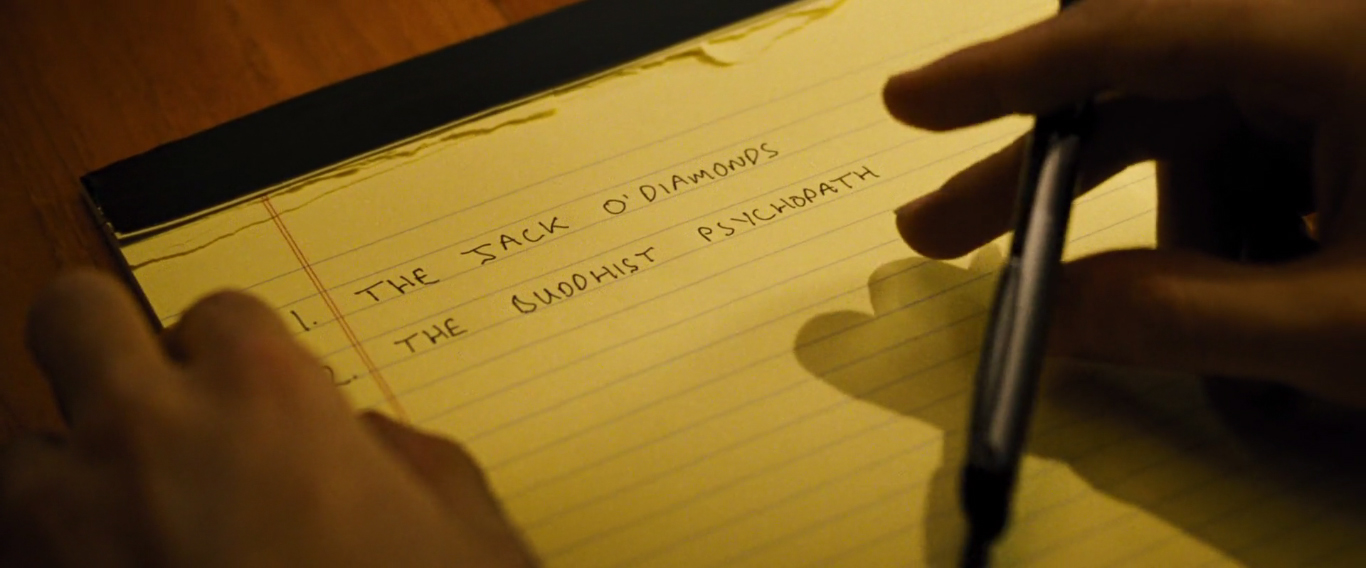 1. THE JACK O'DIAMONDS
2. THE BUDDHIST PSYCHOPATH